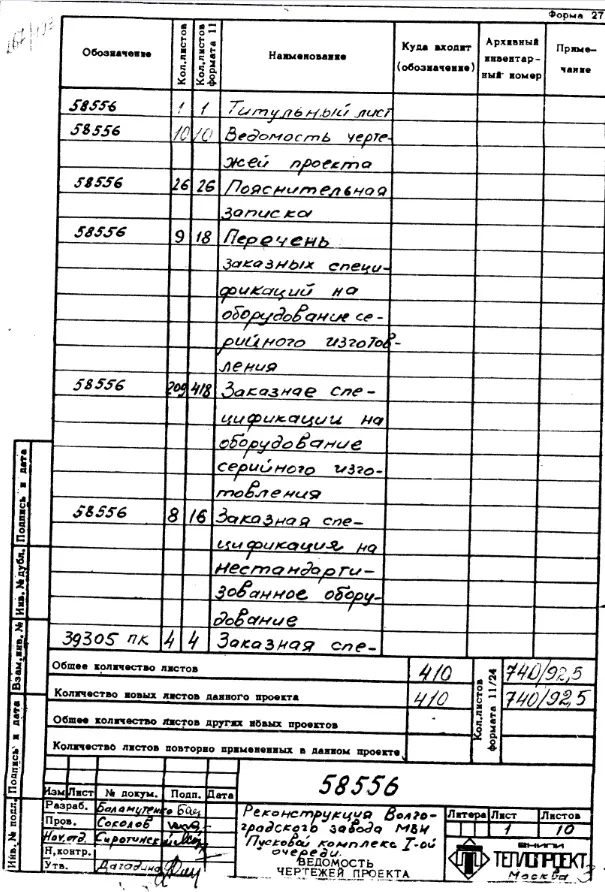 Форма 27
Обозначение
Кол.листов
Кол.листов формата 11
Наименование
Куда входит (обозначение)
Архивный инвентарный номер
Примечание
58556 1 1 Титульный лист
58556 10 10 Ведомость черте-
жей проекта
58556 26 26 Пояснительная
записка
58556 9 18 Перечень
заказных специ-
фикаций на
оборудование се-
рийного изготов-
ления
58556 209 418 Заказнае спе-
цификации на
оборудование
серийного изго-
товления
58556 8 16 Заказная спе-
цификация на
нестандарти-
зованное обору-
дование
39305 ПК 4 4 Заказная спе-
Общее количество листов 410
Количество новых листов данного проекта 410
Общее количество листов других новых проектов
Количество листов повторно примененных в данном проекте
Кол.листов формата 11/24
740/92,5
740/92,5
Инв.№ подл. Подпись и дата Взам.инв.№ Инв.№дубл. Подпись и дата
58556
Изм Лист № докум. Подп. Дата
Разраб.
Пров. Соколов
Нач.отд. Сиротинский
Н.контр.
Утв.
Реконструкция Волго-
градского завода МВИ
Пусковой комплекс I-ой
очереди.
ВЕДОМОСТЬ
ЧЕРТЕЖЕЙ ПРОЕКТА
Литера Лист Листов
1 10
ВНИПИ
ТЕПЛОПРОЕКТ
Москва